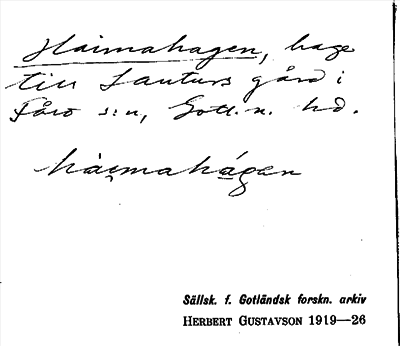 Haimahagen, hage
till Lauturs gård i
Fårö s:n, Gotl. n. hd.
hài̯mahága̲n
Sällsk. f. Gotländsk forskn. arkiv
HERBERT GUSTAVSON 1919—26